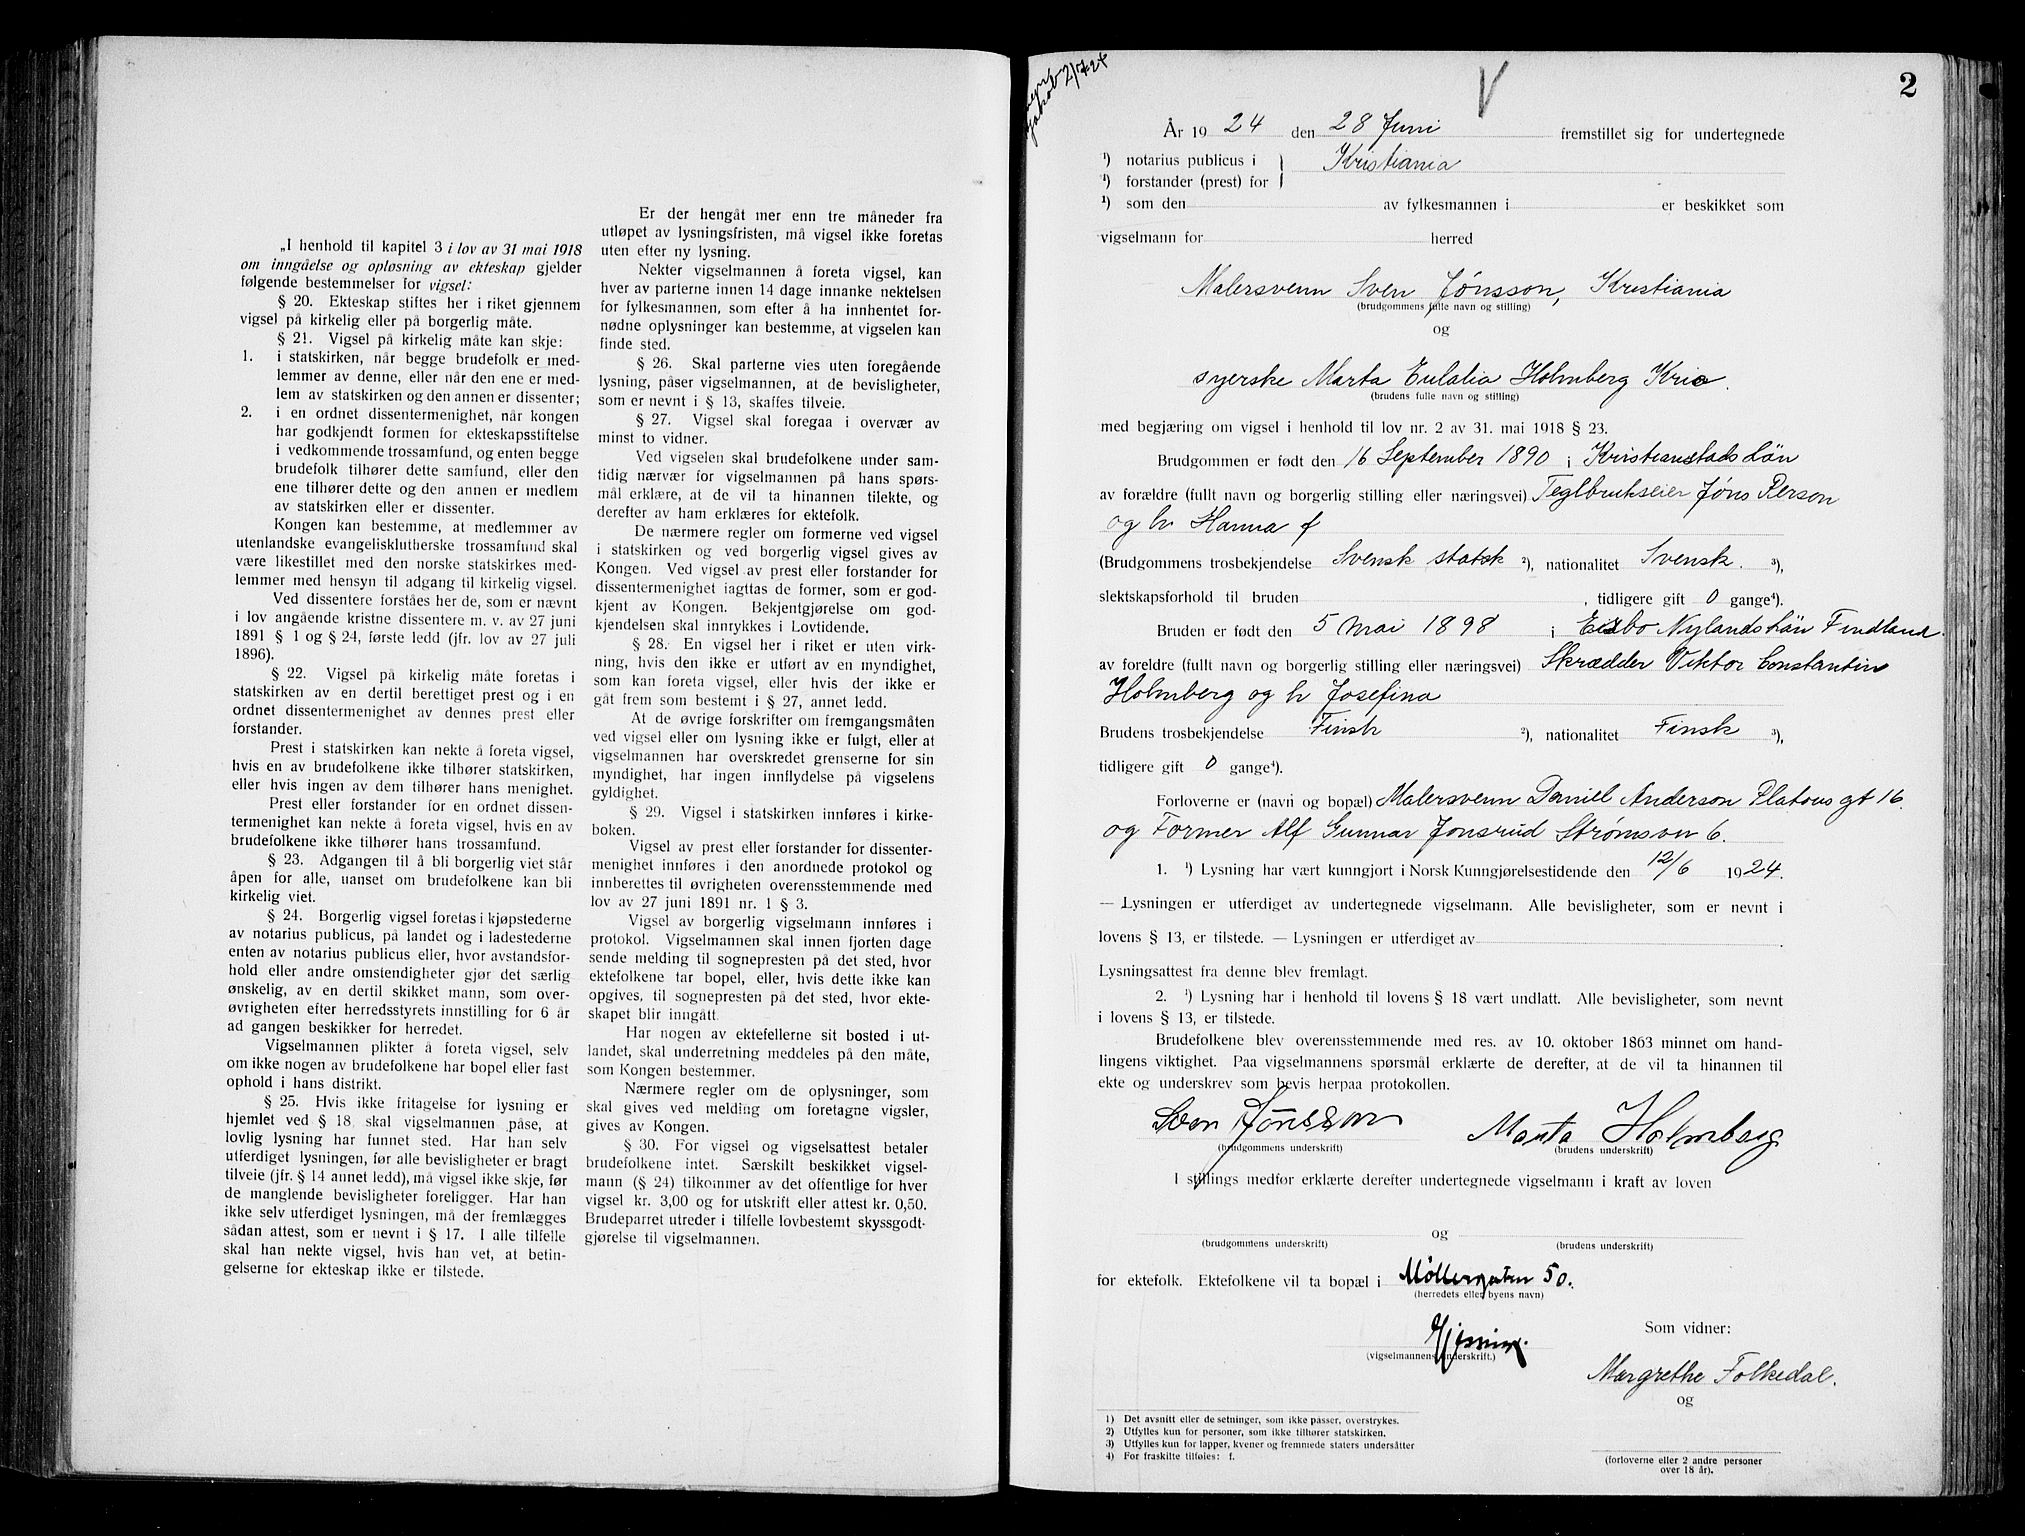 „I henhold til kapitel 3 i lov av 31 mai 1918
om inngåelse og opløsning av ekteskap gjelder
følgende bestemmelser for vigsel:
§ 20. Ekteskap stiftes her i riket gjennem
vigsel på kirkelig eller på borgerlig måte.
§ 21. Vigsel på kirkelig måte kan skje:
1. i statskirken, når begge brudefolk er med-
lemmer av denne, eller når den ene er med-
lem av statskirken og den annen er dissenter;
2. i en ordnet dissentermenighet, når kongen
har godkjendt formen for ekteskapsstiftelse
i vedkommende trossamfund, og enten begge
brudefolk tilhører dette samfund, eller den
ene tilhører dette og den annen er medlem
av statskirken eller er dissenter.
Kongen kan bestemme, at medlemmer av
utenlandske evangelisklutherske trossamfund skal
være likestillet med den norske statskirkes med-
lemmer med hensyn til adgang til kirkelig vigsel.
Ved dissentere forståes her de, som er nævnt
i lov angående kristne dissentere m. v. av 27 juni
1891 § 1 og § 24, første ledd (jfr. lov av 27 juli
1896).
§ 22. Vigsel på kirkelig måte foretas i
statskirken av en dertil berettiget prest og i en
ordnet dissentermenighet av dennes prest eller
forstander.
Prest i statskirken kan nekte å foreta vigsel,
hvis en av brudefolkene ikke tilhører statskirken,
eller hvis ingen av dem tilhører hans menighet.
Prest eller forstander for en ordnet dissen-
termenighet kan nekte å foreta vigsel, hvis en av
brudefolkene ikke tilhører hans trossamfund.
§ 23. Adgangen til å bli borgerlig viet står
åpen for alle, uanset om brudefolkene kan bli
kirkelig viet.
§ 24. Borgerlig vigsel foretas i kjøpstederne
av notarius publicus, på landet og i ladestederne
enten av notarius publicus eller, hvor avstandsfor-
hold eller andre omstendigheter gjør det særlig
ønskelig, av en dertil skikket mann, som over-
øvrigheten efter herredsstyrets innstilling for 6 år
ad gangen beskikker for herredet.
Vigselmannen plikter å foreta vigsel, selv
om ikke nogen av brudefolkene har bopel eller fast
ophold i hans distrikt.
§ 25. Hvis ikke fritagelse for lysning er
hjemlet ved § 18, skal vigselmannen påse, at
lovlig lysning har funnet sted. Har han selv
utferdiget lysningen, før alle bevisligheter er bragt
tilveie (jfr. § 14 annet ledd), må vigsel ikke skje, før
de manglende bevisligheter foreligger. Har han
ikke selv utferdiget lysningen, må der fremlægges
sådan attest, som er nevnt i § 17. I alle tilfelle
skal han nekte vigsel, hvis han vet, at betin-
gelserne for ekteskap ikke er tilstede.
Er der hengåt mer enn tre måneder fra
utløpet av lysningsfristen, må vigsel ikke foretas
uten efter ny lysning.
Nekter vigselmannen å foreta vigsel, kan
hver av parterne innen 14 dage innanke nektelsen
for fylkesmannen, som efter å ha innhentet for-
nødne oplysninger kan bestemme, at vigselen kan
finde sted.
§ 26. Skal parterne vies uten foregående
lysning, påser vigselmannen, at de bevisligheter,
som er nevnt i § 13, skaffes tilveie.
§ 27. Vigsel skal foregaa i overvær av
minst to vidner.
Ved vigselen skal brudefolkene under sam-
tidig nærvær for vigselmannen på hans spørs-
mål erklære, at de vil ta hinannen tilekte, og
derefter av ham erklæres for ektefolk.
De nærmere regler om formerne ved vigsel
i statskirken og ved borgerlig vigsel gives av
Kongen. Ved vigsel av prest eller forstander for
dissentermenighet iagttas de former, som er god-
kjent av Kongen. Bekjentgjørelse om god-
kjendelsen skal innrykkes i Lovtidende.
§ 28. En vigsel her i riket er uten virk-
ning, hvis den ikke er utført av en myndighet,
som kan foreta vigsel, eller hvis der ikke er
gåt frem som bestemt i § 27, annet ledd.
At de øvrige forskrifter om fremgangsmåten
ved vigsel eller om lysning ikke er fulgt, eller at
vigselmannen har overskredet grenserne for sin
myndighet, har ingen innflydelse på vigselens
gyldighet.
§ 29. Vigsel i statskirken innføres i kirke-
boken.
Vigsel av prest eller forstander for dissenter-
menighet innføres i den anordnede protokol og
innberettes til øvrigheten overensstemmende med
lov av 27 juni 1891 nr. 1 § 3.
Vigsel av borgerlig vigselmann innføres i
protokol. Vigselmannen skal innen fjorten dage
sende melding til sognepresten på det sted, hvor
ektefolkene tar bopel, eller, hvis dette ikke kan
opgives, til sognepresten på det sted, hvor ekte-
skapet blir inngått.
Har nogen av ektefellerne sit bosted i ut-
landet, skal underretning meddeles på den måte,
som Kongen bestemmer.
Nærmere regler om de oplysninger, som
skal gives ved melding om foretagne vigsler,
gives av Kongen.
§ 30. For vigsel og vigselsattest betaler
brudefolkene intet. Særskilt beskikket vigsel-
mann (§ 24) tilkommer av det offentlige for hver
vigsel kr. 3,00 og for utskrift eller attest kr. 0,50.
Brudeparret utreder i tilfelle lovbestemt skyssgodt-
gjørelse til vigselmannen.
Jakob 2/7 24
V
2
År 1924 den 28 Juni fremstillet sig for undertegnede
¹) notarius publicus i } Kristiania
¹) forstander (prest) for
¹) som den av fylkesmannen i er beskikket som
vigselmann for herred
Malersvenn Sven Jønsson, Kristiania
(brudgommens fulle navn og stilling)
og
syerske Marta Eulalia Holmberg Kria.
(brudens fulle navn og stilling)
med begjæring om vigsel i henhold til lov nr. 2 av 31. mai 1918 § 23.
Brudgommen er født den 16 September 1890 i Kristianstads Län
av forældre (fullt navn og borgerlig stilling eller næringsvei) Teglbrukseier Jøns Person
og h Hanna f
(Brudgommens trosbekjendelse Svensk statsk ²), nationalitet Svensk. ³),
slektskapsforhold til bruden , tidligere gift 0 gange⁴).
Bruden er født den 5 mai 1898 i Esbo Nylands Län Findland
av foreldre (fullt navn og borgerlig stilling eller næringsvei) Skrædder Viktor Constantin
Holmberg og h Josefina
Brudens trosbekjendelse Finsk ²), nationalitet Finsk ³),
tidligere gift 0 gange⁴).
Forloverne er (navn og bopæl) Malersvenn Daniel Anderson Platous gt 16
og Former Alf Gunnar Jonsrud Strømsvn 6.
1. ¹) Lysning har vært kunngjort i Norsk Kunngjørelsestidende den 12/6 1924.
— Lysningen er utferdiget av undertegnede vigselmann. Alle bevisligheter, som er nevnt i
lovens § 13, er tilstede. — Lysningen er utferdiget av
Lysningsattest fra denne blev fremlagt.
2. ¹) Lysning har i henhold til lovens § 18 vært undlatt. Alle bevisligheter, som nevnt
i lovens § 13, er tilstede.
Brudefolkene blev overensstemmende med res. av 10. oktober 1863 minnet om hand-
lingens viktighet. Paa vigselmannens spørsmål erklærte de derefter, at de vil ta hinannen til
ekte og underskrev som bevis herpaa protokollen.
Sven Jönsson Marta Holmberg
(brudgommens underskrift) (brudens underskrift)
I stillings medfør erklærte derefter undertegnede vigselmann i kraft av loven
og
(brudgommens underskrift) (brudens underskrift)
for ektefolk. Ektefolkene vil ta bopæl i Møllergaten 50.
(herredets eller byens navn)
Som vidner:
(vigselmannens underskrift.)
Margrethe Folkedal.
og
1) Det avsnitt eller de setninger, som ikke passer, overstrykes.
2) Utfylles kun for personer, som ikke tilhører statskirken.
3) Utfylles kun for lapper, kvener og fremmede staters undersåtter
4) For fraskilte tilføies: f.
(forloverne eller 2 andre personer
over 18 år).